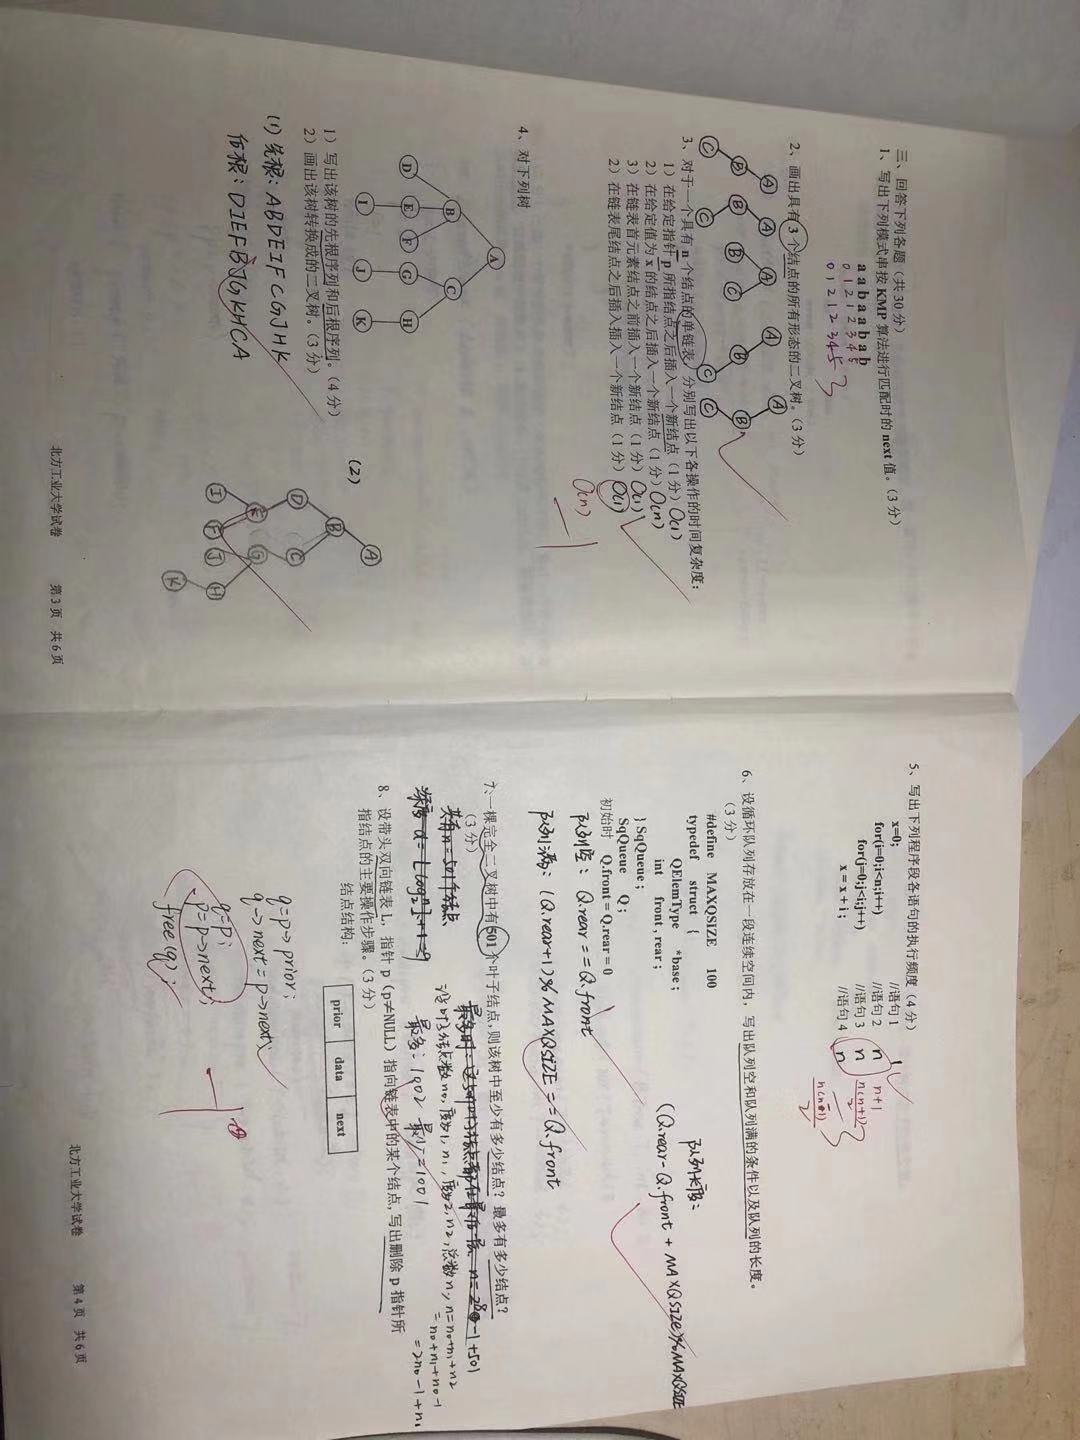 三、回答下列各题（共30分）
1、写出下列模式串按 KMP 算法进行匹配时的 next 值。（3分）
a a b a a b a b
0 1 2 1 2 3 4 5
0 1 2 1 2 3 4 5
2、画出具有 3 个结点的所有形态的二叉树。（3分）
A A A A A
B B B C B B
C C C C
3、对于一个具有 n 个结点的单链表，分别写出以下各操作的时间复杂度：
1）在给定指针 p 所指结点之后插入一个新结点（1分）O(1)
2）在给定值为 x 的结点之后插入一个新结点（1分）O(n)
3）在链表首元素结点之前插入一个新结点（1分）O(1)
2）在链表尾结点之后插入插入一个新结点（1分）O(1)
O(n)
-1
4、对下列树
A
B C
D E F G H
I J K
1）写出该树的先根序列和后根序列。（4分）
2）画出该树转换成的二叉树。（3分）
(1) 先根：ABDEIFCGJHK
后根：DIEFBJGKHCA
(2)
A
B
D C
E G
I F J H
K
北方工业大学试卷 第3页 共6页
5、写出下列程序段各语句的执行频度（4分）
x=0; //语句 1 1
for(i=0;i<n;i++) //语句 2 n n+1
for(j=0;j<i;j++) //语句 3 n n(n+1)/2
x = x + i ; //语句 4 n
n(n-1)/2
6、设循环队列存放在一段连续空间内，写出队列空和队列满的条件以及队列的长度。
（3分）
#define MAXQSIZE 100
typedef struct {
QElemType *base ;
int front , rear ;
} SqQueue ;
SqQueue Q ;
初始时 Q.front = Q.rear = 0
队列长度：
(Q.rear - Q.front + MAXQSIZE)%MAXQSIZE
队列空： Q.rear == Q.front
队列满： (Q.rear+1)% MAXQSIZE == Q.front
7、一棵完全二叉树中有 501 个叶子结点,则该树中至少有多少结点？最多有多少结点？
（3分）
共有n=501个结点
最多时：这501个叶子结点都在最后一层
设叶子结点数n0, 度为1, n1, 度为2, n2, 总数n, n=n0+n1+n2
=n0+n1+n0-1
=2n0-1+n1
最多：1002 最少=1001
8、设带头双向链表 L，指针 p（p≠NULL）指向链表中的某个结点,写出删除 p 指针所
指结点的主要操作步骤。（3分）
结点结构：
prior data next
q=p→prior;
q→next=p→next;
q=p;
p=p→next;
free(q);
-1
北方工业大学试卷 第4页 共6页